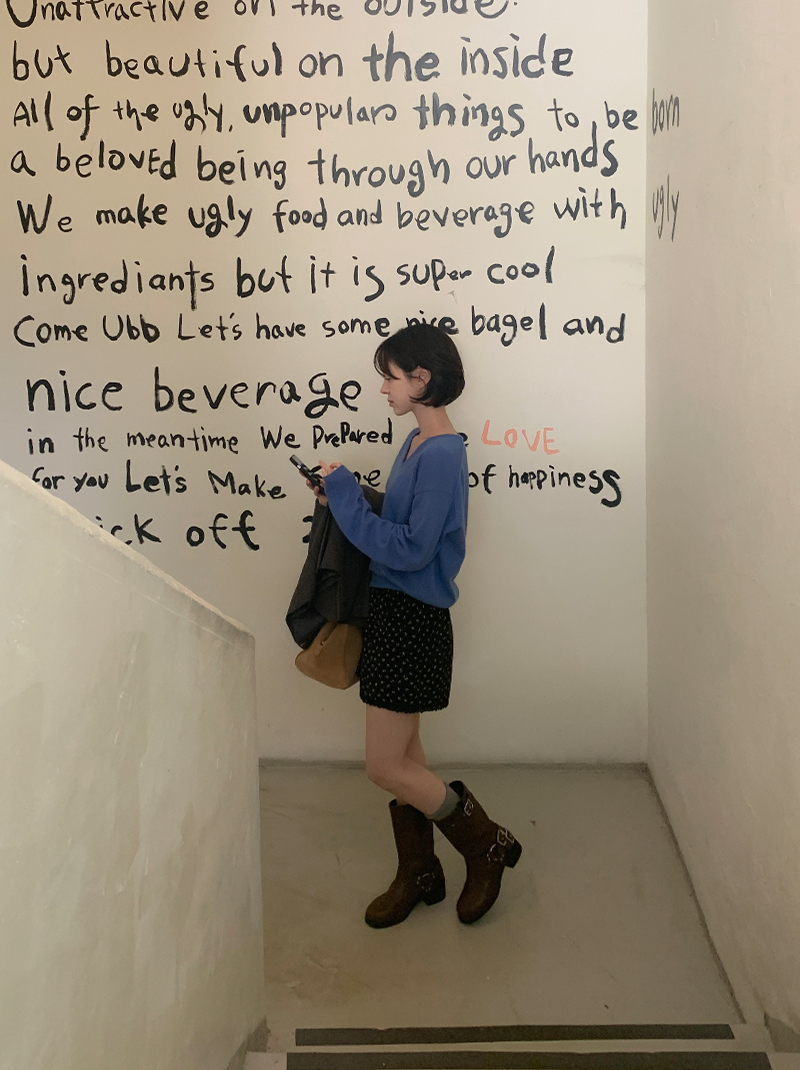 Unattractive on the outside.
but beautiful on the inside
All of the ugly, unpopular things to be born
a beloved being through our hands
We make ugly food and beverage with ugly
ingrediants but it is super cool
Come Ubb Let's have some nice bagel and
nice beverage
in the meantime We PrePared LOVE
for you Let's Make of happiness
off